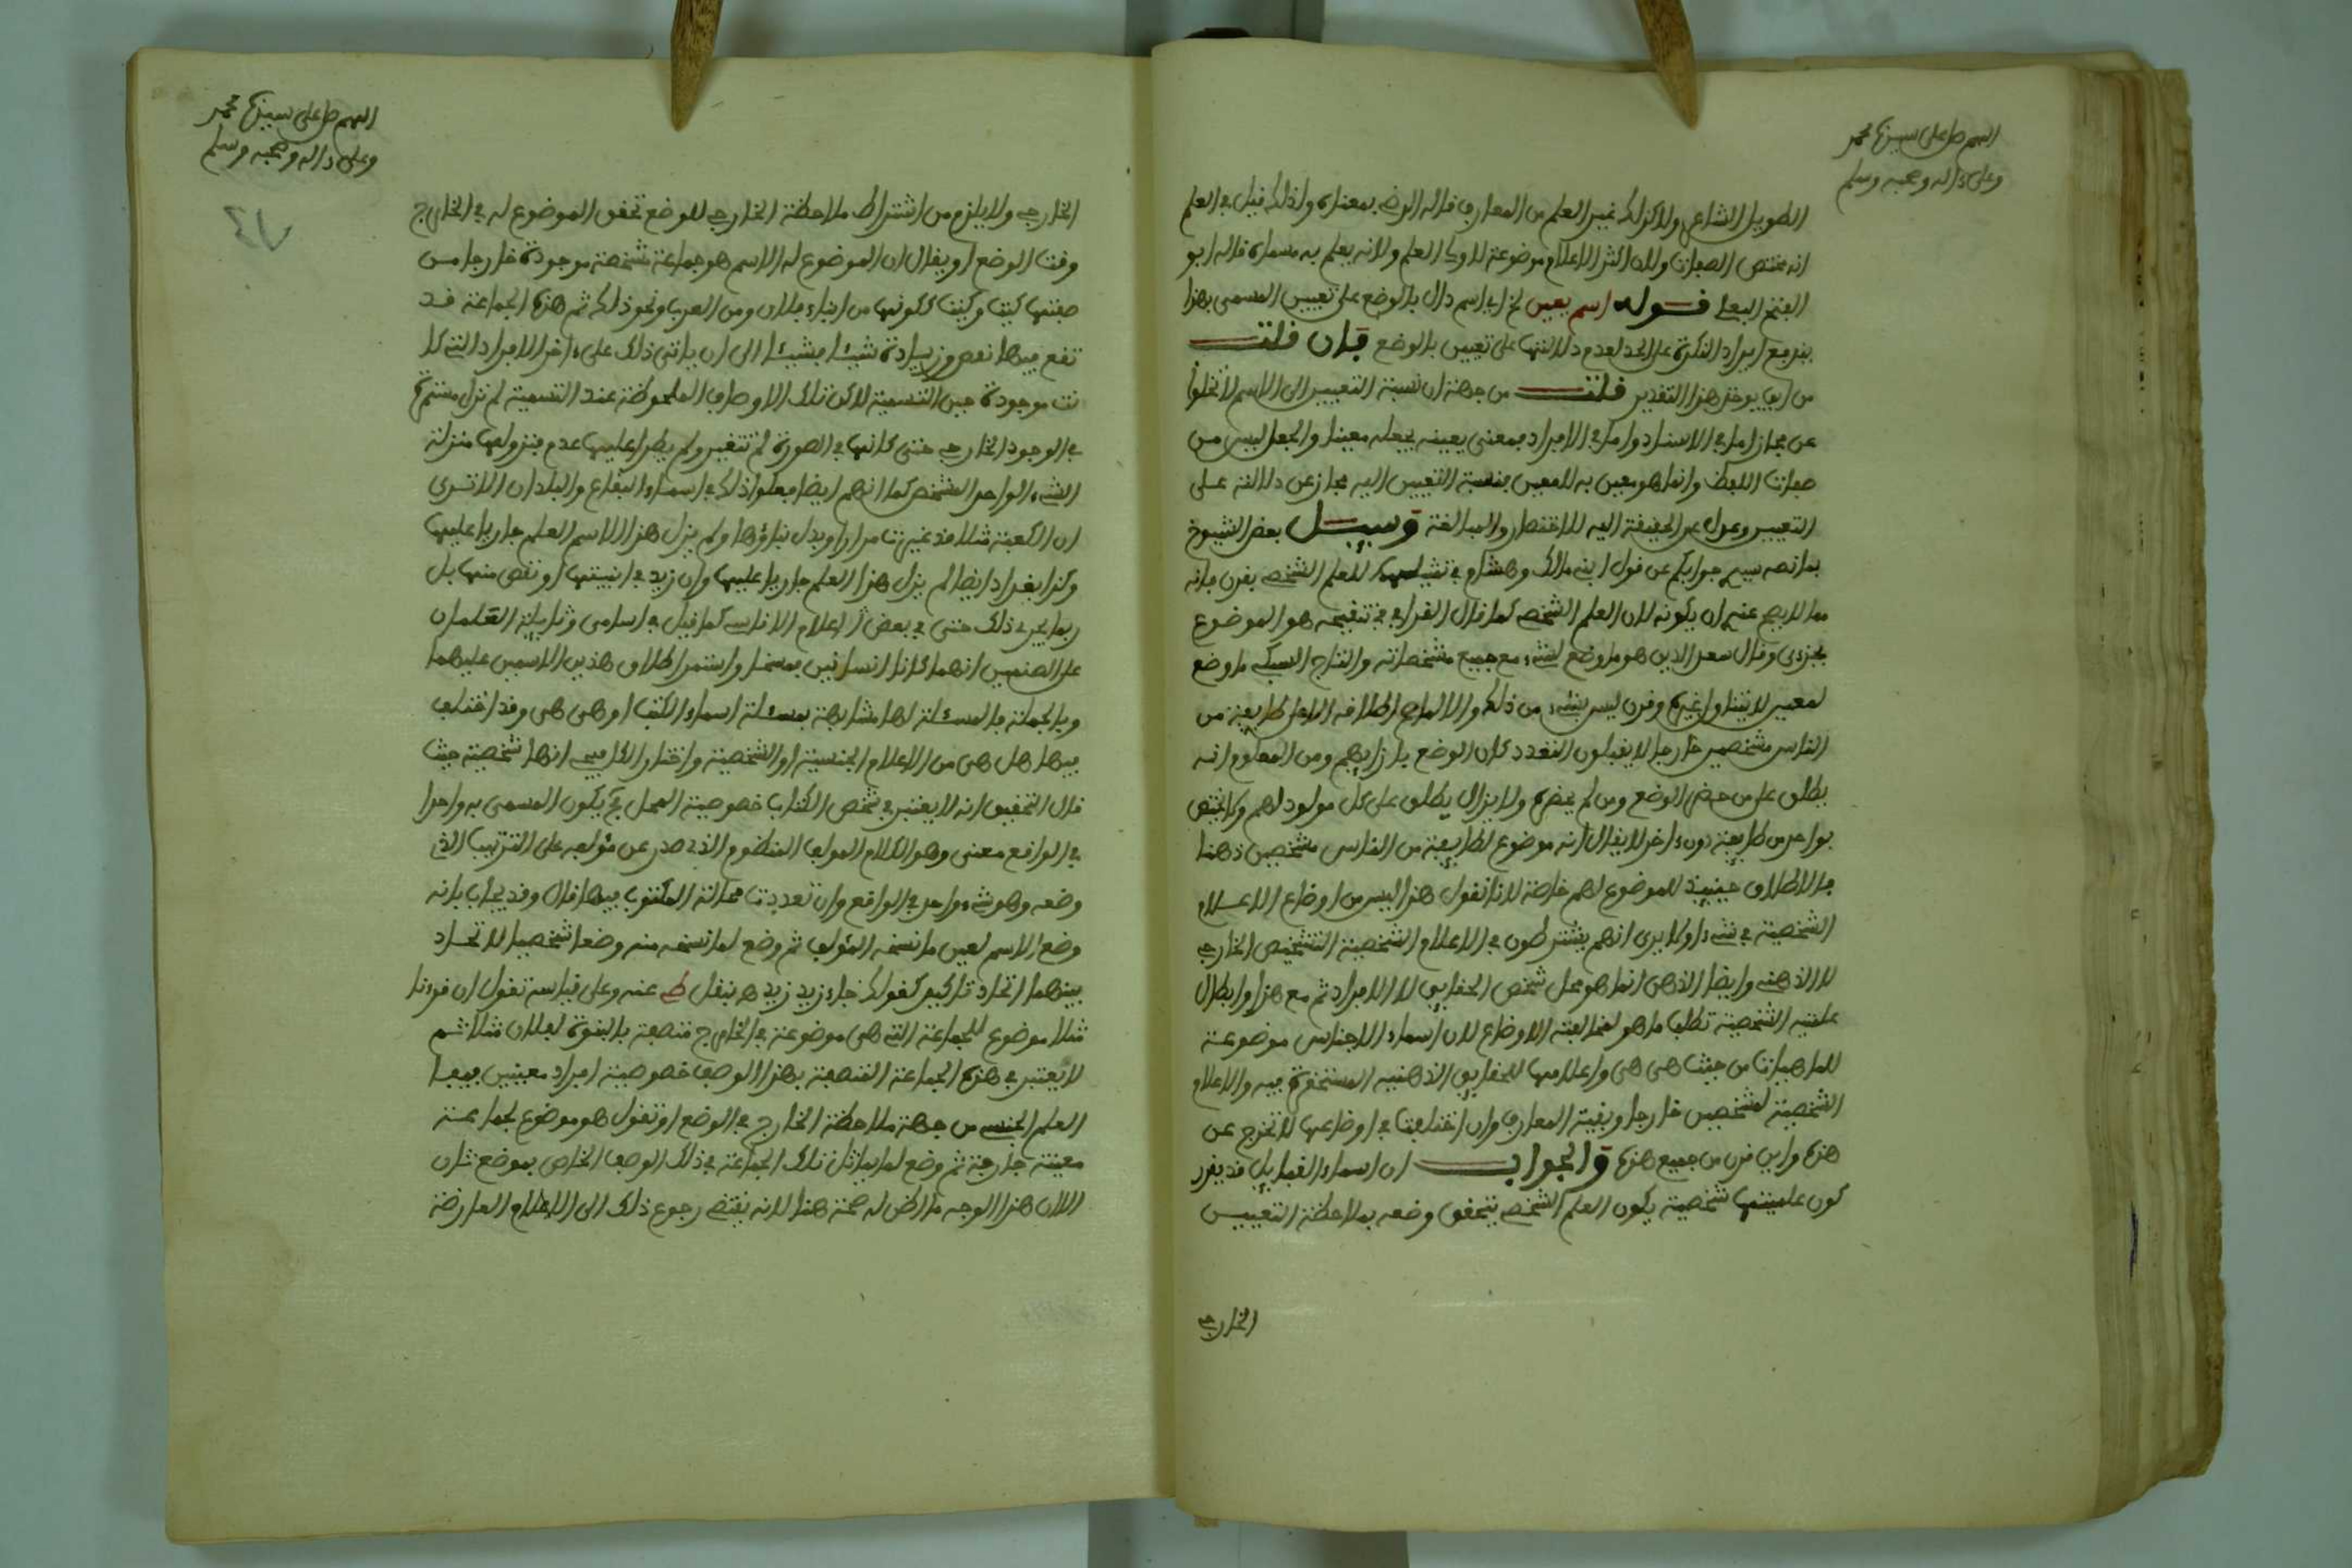 اللهم صل على سيدنا محمد
وعلى ءاله وصحبه وسلم
الطويل الشاعر ولا كذلك غير العلم من المعارف قاله الرضى بمعناه ولذلك قيل في العلم
انه مختص الصفات ولان اكثر الاعلام موضوعة لاولى العلم ولانه يعلم به مسماه قاله ابو
الفتح البعلى قوله اسم يعين لخ اى اسم دال بالوضع على تعيين المسمى بهذا
يندفع ايراد النكرة على الحد لعدم دلالتها على تعيين بالوضع فان قلت
من اين يوخذ هذا التقدير قلت من جهة ان نسبة التعيين الى الاسم لا تخلوا
عن مجاز اما في الاسناد واما في الافراد بمعنى يعينه يجعله معينا والجعل ليس من
صفات اللفظ وانما هو معين به للمعين بنسبة التعيين اليه مجاز عن دلالته على
التعيين وعدل عن الحقيقة اليه للاختصار والمبالغة وسيل بعض الشيوخ
بما نصه سيدي جوابكم عن قول ابن مالك وهشام في تمثيلهما للعلم الشخصي بقرن فانه
مما لا يصح عندي ان يكونه لان العلم الشخصي كما قال القرافي في تنقيحه هو الموضوع
لجزءى وقال سعد الدين هو ما وضع لشىء مع جميع مشخصاته والتاج السبكي ما وضع
لمعين لا يتناول غيره وقرن ليس بشىء من ذلك والا لما صح اطلاقه الا على طايفة من
الناس مشخصين خارجا لا يقبلون التعدد كان الوضع بازايهم ومن المعلوم انه
يطلق على من حضر الوضع ومن لم يحضره ولا يزال يطلق على كل مولود لهم ولا يختص
بواحد من طايفة دون ءاخر لا يقال انه موضوع لطايفة من الناس مشخصين ذهنا
فالاطلاق حينيذ للموضوع لهم خاصة لانا نقول هذا ليس من اوضاع الاعلام
الشخصية في شىء اولا يرى انهم يشترطون في الاعلام الشخصية التشخيص الخارجي
لا الذهني وايضا الذهن انما هو محل شخص الحقايق لا الافراد ثم مع هذا وابطال
علميه الشخصية تطلب ما هو لمخالفته الاوضاع لان اسماء الاجناس موضوعة
للماهيات من حيث هى هى واعلامها للحقايق الذهنيه المستحضرة فيه والاعلام
الشخصية لمشخصين خارجا وبقية المعارف وان اختلفت في اوضاعها لا تخرج عن
هذه واين قرن من جميع هذه والجواب ان اسماء القبايل قد يقرر
كون علميتها شخصية يكون العلم الشخصي يتحقق وضعه بملاحظة التعيين
الخارجي
اللهم صل على سيدنا محمد
وعلى ءاله وصحبه وسلم
الخارجي ولا يلزم من اشتراط ملاحظة الخارجي للوضع تحقق الموضوع له في الخارج
وقت الوضع او يقال ان الموضوع له الاسم هو جماعة مشخصة موجودة خارجا من
صفتها كيت وكيت ككونها من ابناء فلان ومن العرب ونحو ذلك ثم هذه الجماعة قد
تقع فيها نقص وزيادة شيئا فشيئا الى ان ياتى ذلك على ءاخر الافراد التي كا
نت موجودة حين التسمية لاكن تلك الاوصاف الملحوظة عند التسمية لم تزل مستمرة
في الوجود الخارجي حتى كانها في الصورة لم تتغير ولم يطرا عليها عدم فنزلوها منزلة
الشىء الواحد المشخص كما انهم ايضا فعلوا ذلك في اسماء البقاع والبلدان الا ترى
ان الكعبة مثلا قد غيرت مرارا وبدل بناؤها ولم يزل هذا الاسم العلم جاريا عليها
وكذا بغداد ايضا لم يزل هذا العلم جاريا عليها وان زيد في ابنيتها او نقص منها بل
ربما يجرى ذلك حتى في بعض اعلام الاناسي كما قيل في اساف ونايلة العلمان
على الصنمين انهما كانا انسانين فمسخا واستمر اطلاق هذين الاسمين عليهما
وبالجملة فالمسئلة لها مشابهة بمسئلة اسماء الكتب او هى هى وقد اختلف
فيها هل هى من الاعلام الجنسية او الشخصية واختار الكافيجى انها شخصية حيث
قال التحقيق انه لا يعتبر في شخص الكتاب خصوصية المحل فيكون المسمى به واحدا
في الواقع معنى وهو الكلام المولف المنظوم الذي صدر عن مؤلفه على الترتيب الذي
وضعه وهو شىء واحد في الواقع وان تعددت محاله المكتوب فيها قال وقد يجاب بانه
وضع الاسم لعين ما نسخه المؤلف ثم وضع لما نسخ منه وضعا شخصيا لاتحاد
بينهما اتحاد تاكيد كقولك جاء زيد زيد هـ بنقل ط عنه وعلى قياسه تقول ان قرنا
مثلا موضوع للجماعة التي هى موضوعة في الخارج متصفة بالبنوة لفلان مثلا ثم
لا يعتبر في هذه الجماعة المتصفة بهذا الوصف خصوصية افراد معينين فيها
العلم الجنسي من جهة ملاحظة الخارج في الوضع او تقول هو موضوع لجماعة
معينة خارجة ثم وضع لما يماثل تلك الجماعة في ذلك الوصف الخاص بوضع ثان
الا ان هذا الوجه ما اظن له صحة هنا لانه يقتضي رجوع ذلك الى الاعلام العارضة